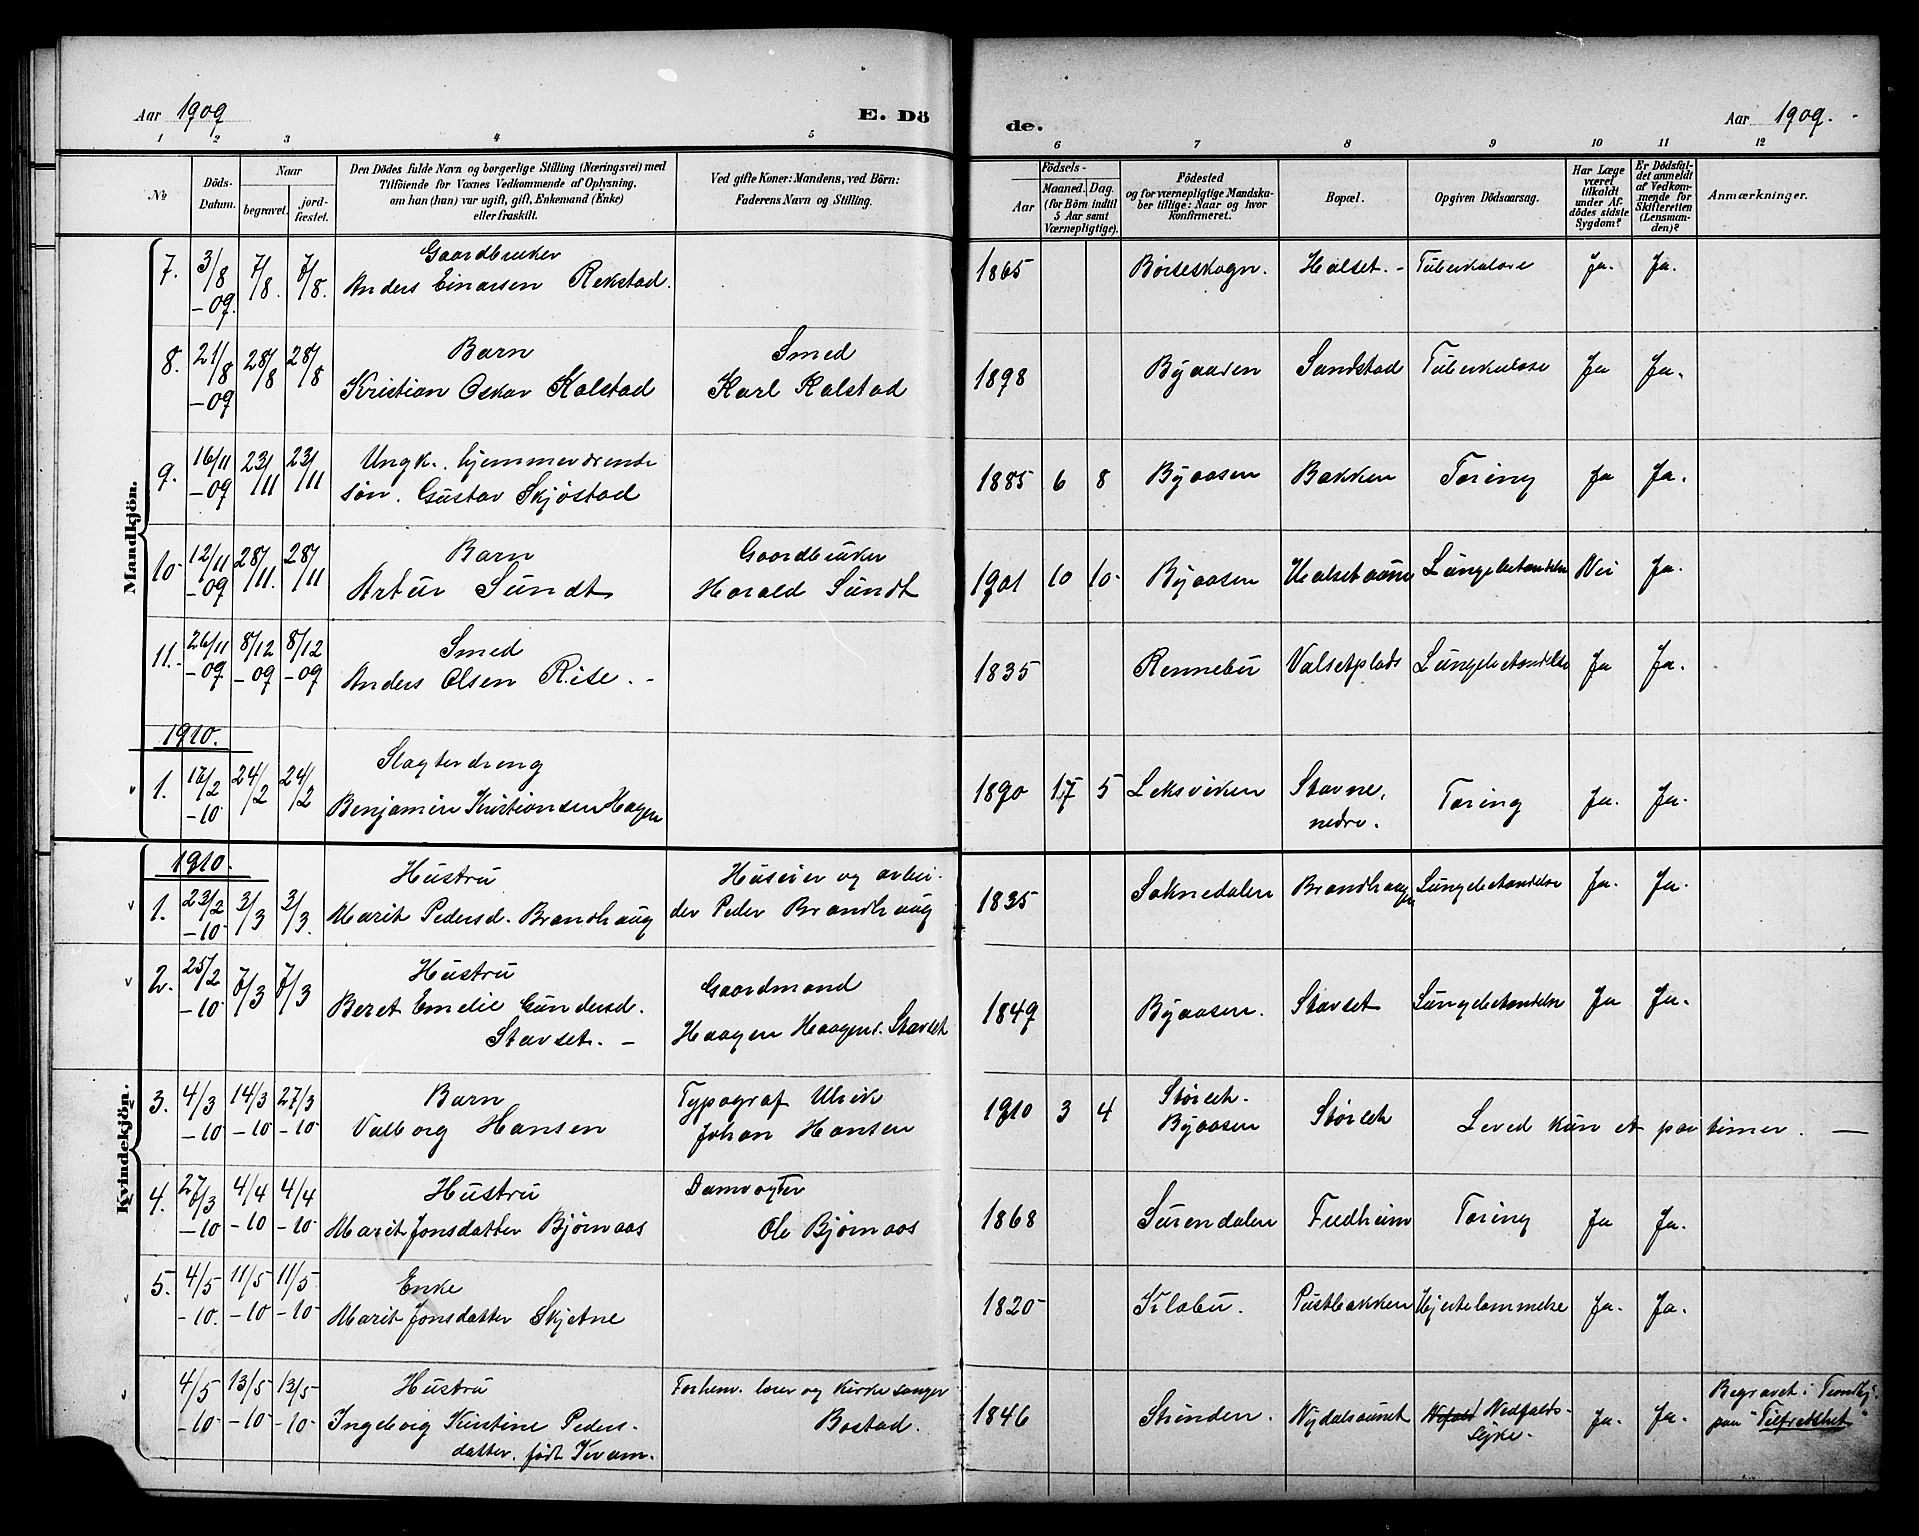 Aar 1909
E. Dö
de.
Aar 1909.
1 2 3 4 5 6 7 8 9 10 11 12
No
Döds-Datum.
Naar
begravet.
jord-fæstet.
Den Dödes fulde Navn og borgerlige Stilling (Næringsvei) med
Tilföiende for Voxnes Vedkommende af Oplysning,
om han (hun) var ugift, gift, Enkemand (Enke)
eller fraskilt.
Ved gifte Koner: Mandens, ved Börn:
Faderens Navn og Stilling.
Födsels-
Aar
Maaned. Dag.
(for Börn indtil
5 Aar samt
Værnepligtige).
Födested
og for værnepligtige Mandska-
ber tillige: Naar og hvor
Konfirmeret.
Bopæl.
Opgiven Dödsaarsag.
Har Læge
været
tilkaldt
under Af-
dödes sidste
Sygdom?
Er Dödsfal-
det anmeldt
af Vedkom-
mende for
Skifteretten
(Lensman-
den)?
Anmærkninger.
Mandkjön.
7. 3/8 -09. 7/8. 7/8. Gaardbruker
Anders Einarsen Rekstad. 1865 Børseskogn. Halset. - Tuberkulose Ja. Ja.
8. 21/8 -09 28/8 28/8 Barn
Kristian Oskar Kolstad
Smed
Karl Kolstad 1898 Byaasen Sundstad Tuberkulose Ja Ja.
9. 16/11 -09 23/11 23/11 Ungk. hjemmeværende
søn. Gustav Skjøstad 1885 6 8 Byaasen Bakken Tæring Ja Ja.
10 12/11 -09 28/11. 28/11 Barn
Artur Sundt
Gaardbruker
Harald Sundt 1901 10 10. Byaasen Lungebetændelse Nei Ja.
11. 26/11 -09 8/12 -09 8/12 -09 Smed
Anders Olsen Rise. - 1835 Rennebu Valsetplads Lungebetændelse Ja Ja.
1910.
1. 16/2 -10 24/2 24/2 Slagterdreng
Benjamin Kristiansen Hagen 1890 5 Leksviken Stavne,
nedre. Tæring Ja. Ja.
Kvindekjön.
1910.
1. 23/2 -10 3/3 3/3. Hustru
Marit Pedersd. Brandhaug
Huseier og arbei-
der Peder Brandhaug 1835 Soknedalen Brandhaug Lungebetændelse Ja. Ja.
2. 25/2 -10 7/3 7/3 Hustru
Beret Emelie Gundersd.
Stavset. -
Gaardmand
Haagen Haagens. Stavset 1849 Byaasen. Stavset Lungebetændelse Ja Ja.
3. 4/3 -10 14/3 -10 27/3 -10 Barn
Valborg Hansen
Typograf Ulrik
Johan Hansen 1910 3 4
Byaasen Leved kun et par timer. —
4. 27/3 -10 4/4 -10 4/4 -10 Hustru
Marit Jonsdatter Bjørnaas
Damvogter
Ole Bjørnaas 1868 Surendalen Fredheim Tæring Ja Ja.
5. 4/5 -10. 11/5 -10 11/5 -10 Enke
Marit Jonsdatter Skjetne 1820 Klæbu. Pustbakken Hjertelammelse Ja. Ja.
4/5 -10 13/5 -10 13/5 -10 Hustru
Ingeborg Kirstine Peders-
datter. født Kvam.
Forhenv. lærer og kirkesanger
Bostad. 1846 Strinden. Nedfalds-
syke. Ja. Ja.
Begravet i Trondhj.
paa "Tilfredshet"